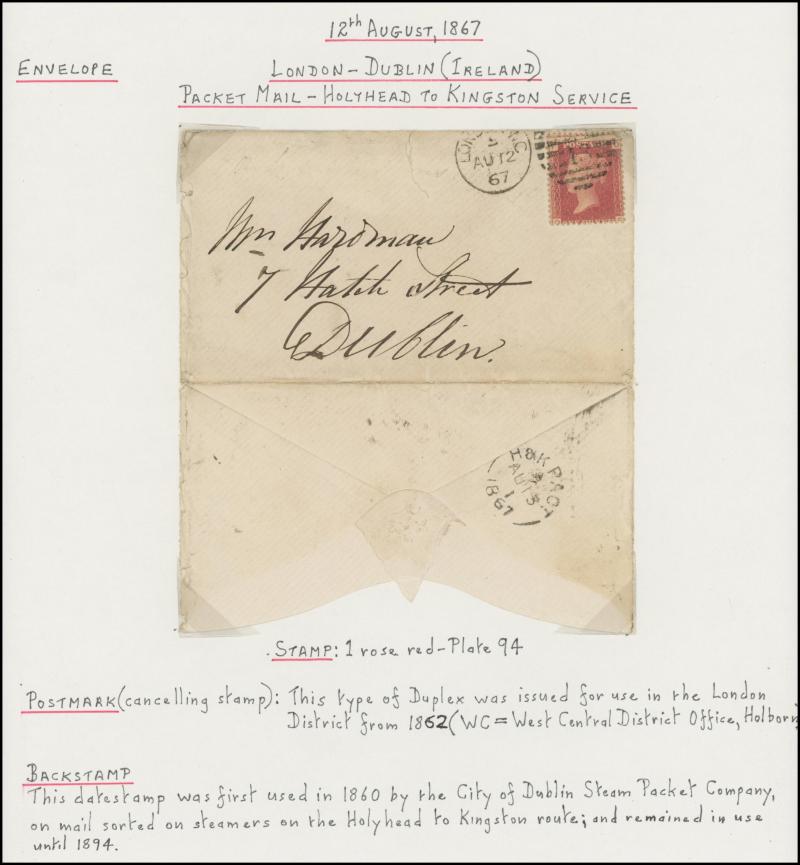 12th AUGUST, 1867
ENVELOPE
LONDON – DUBLIN (IRELAND)
PACKET MAIL – HOLYHEAD TO KINGSTON SERVICE
AU 12
67
Mrs Hardman
7 Hatch Street
Dublin.
H&K PACKT
AU 13
1
1867
STAMP: 1 rose red – Plate 94
POSTMARK (cancelling stamp): This type of Duplex was issued for use in the London
District from 1862 (WC = West Central District Office, Holborn)
BACKSTAMP
This datestamp was first used in 1860 by the City of Dublin Steam Packet Company,
on mail sorted on steamers on the Holyhead to Kingston route; and remained in use
until 1894.